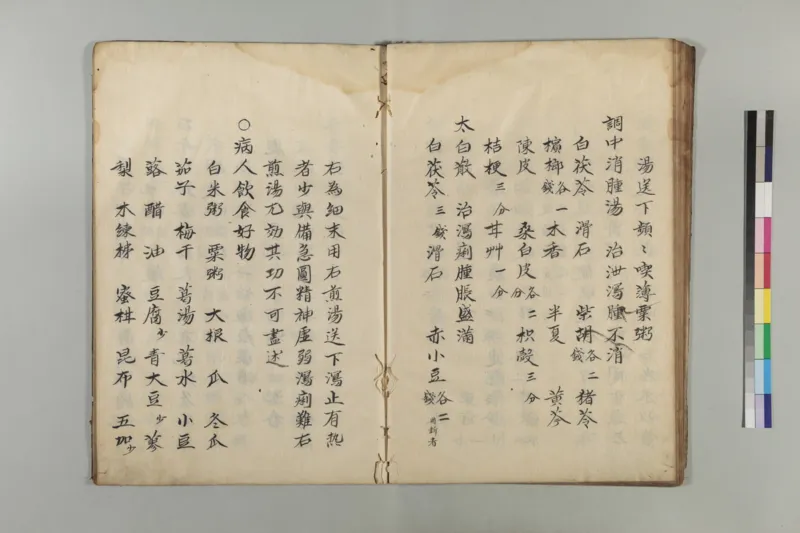 湯送下頻〻喫薄粟粥
調中消腫湯 治泄瀉腫不消
白茯苓 滑石 柴胡各二錢 猪苓
檳榔各一錢 木香 半夏 黄芩
陳皮 桑白皮各二分 枳殼三分
桔梗三分 甘艸一分
太白散 治瀉痢腫脹盛滿
白茯苓三錢 滑石 赤小豆各二錢
右為細末用右煎湯送下瀉止有熱
者少與備急圓精神虚弱瀉痢難右
煎湯尤効其功不可盡述
○病人飲食好物
白米粥 粟粥 大根 瓜 冬瓜
茄子 梅干 葛湯 葛水 小豆
蕗 醋 油 豆腐少 青大豆少 蓼
梨 木練柹 蜜柑 昆布 五加少